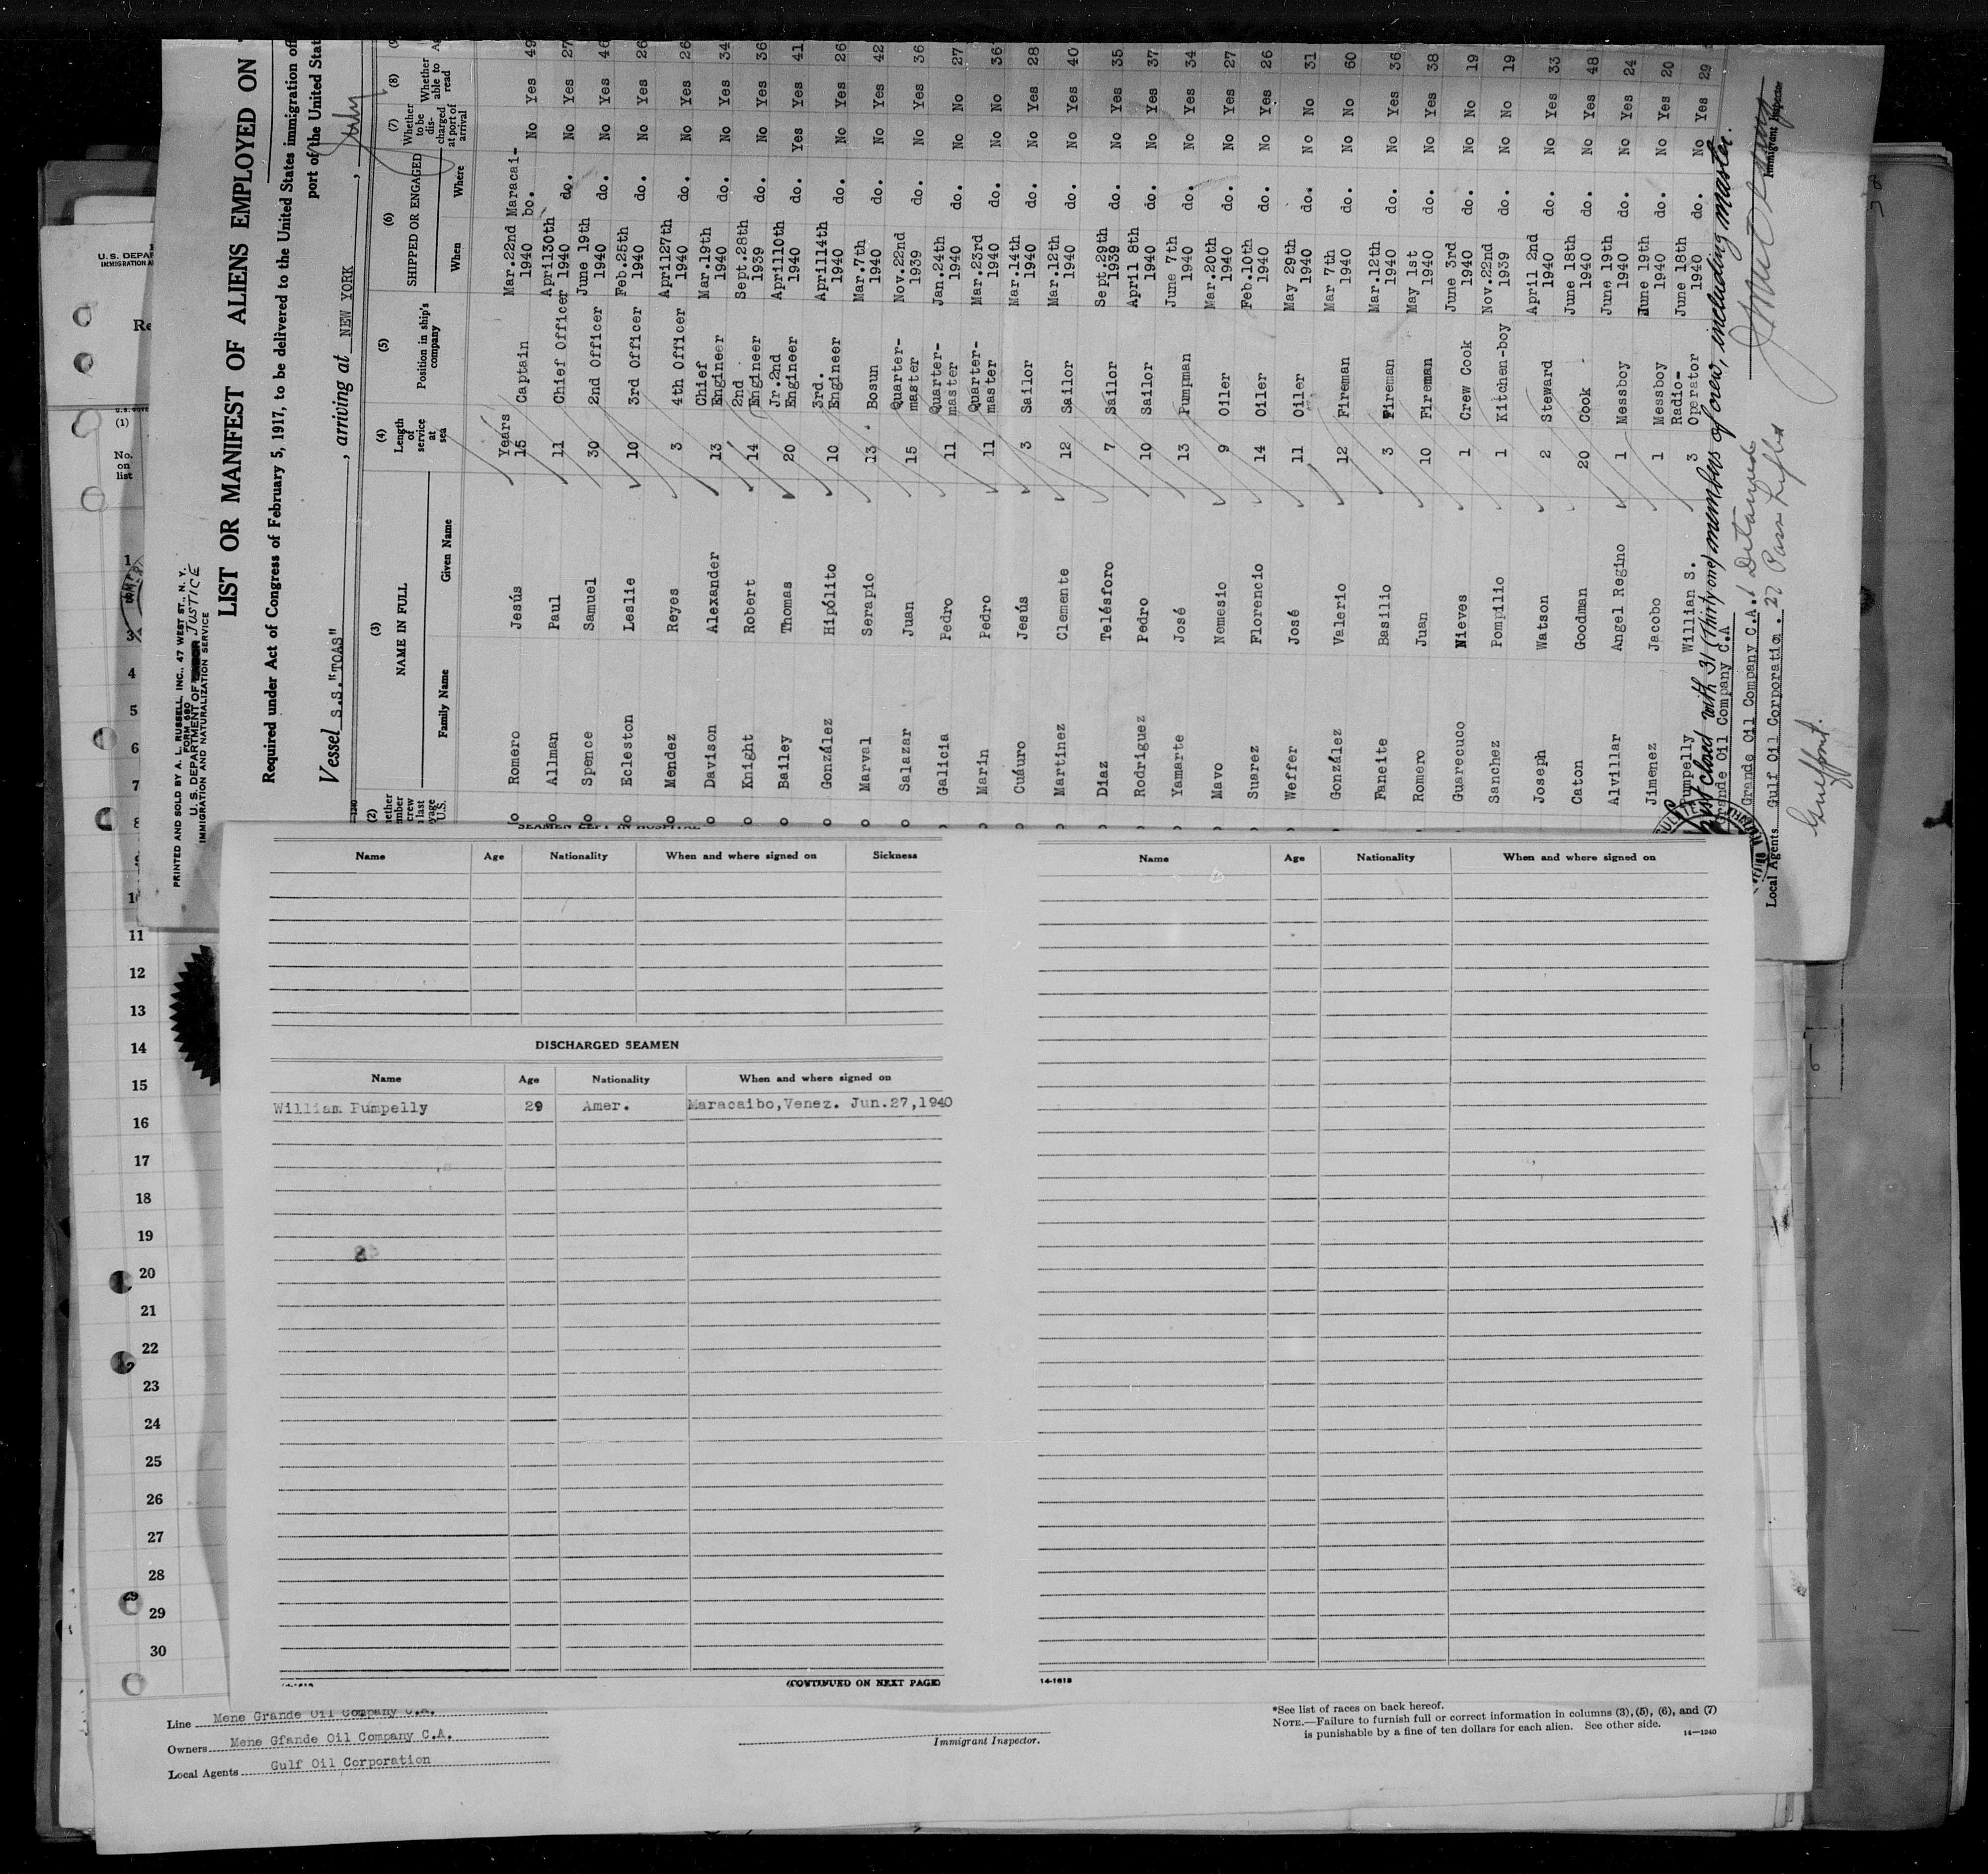 PRINTED AND SOLD BY A. L. RUSSELL, INC., 47 WEST ST., N. Y.
FORM 680
U. S. DEPARTMENT OF JUSTICE
IMMIGRATION AND NATURALIZATION SERVICE
LIST OR MANIFEST OF ALIENS EMPLOYED ON
Required under Act of Congress of February 5, 1917, to be delivered to the United States immigration of
port of the United Stat
Vessel S.S."TOAS" , arriving at NEW YORK ,
(3) (4) (5) (6) (7) (8)
NAME IN FULL Length of service at sea Position in ship's company SHIPPED OR ENGAGED Whether to be discharged at port of arrival Whether able to read
Family Name Given Name When Where
Romero Jesús Years 15 Captain Mar.22nd 1940 Maracaibo. No Yes 49
Allman Paul 11 Chief Officer April30th 1940 do. No Yes 27
Spence Samuel 30 2nd Officer June 19th 1940 do. No Yes 46
Ecleston Leslie 10 3rd Officer Feb.25th 1940 do. No Yes 26
Mendez Reyes 3 4th Officer April27th 1940 do. No Yes 26
Davison Alexander 13 Chief Engineer Mar.19th 1940 do. No Yes 34
Knight Robert 14 2nd Engineer Sept.28th 1939 do. No Yes 36
Bailey Thomas 20 Jr.2nd Engineer April10th 1940 do. Yes Yes 41
González Hipólito 10 3rd. Engineer April14th 1940 do. No Yes 26
Marval Serapio 13 Bosun Mar.7th 1940 do. No Yes 42
Salazar Juan 15 Quarter-master Nov.22nd 1939 do. No Yes 36
Galicia Pedro 11 Quarter-master Jan.24th 1940 do. No No 27
Marin Pedro 11 Quarter-master Mar.23rd 1940 do. No No 36
Cuáuro Jesús 3 Sailor Mar.14th 1940 do. No Yes 28
Martinez Clemente 12 Sailor Mar.12th 1940 do. No Yes 40
Diaz Telésforo 7 Sailor Sept.29th 1939 do. No Yes 35
Rodriguez Pedro 10 Sailor April 8th 1940 do. No Yes 37
Yamarte José 13 Pumpman June 7th 1940 do. No Yes 34
Mavo Nemesio 9 Oiler Mar.20th 1940 do. No Yes 27
Suarez Florencio 14 Oiler Feb.10th 1940 do. No Yes 26
Weffer José 11 Oiler May 29th 1940 do. No No 31
González Valerio 12 Fireman Mar 7th 1940 do. No No 60
Faneite Basilio 3 Fireman Mar.12th 1940 do. No Yes 36
Romero Juan 10 Fireman May 1st 1940 do. No Yes 38
Guarecuco Nieves 1 Crew Cook June 3rd 1940 do. No No 19
Sanchez Pompilio 1 Kitchen-boy Nov.22nd 1939 do. No No 19
Joseph Watson 2 Steward April 2nd 1940 do. No Yes 33
Caton Goodman 20 Cook June 18th 1940 do. No Yes 48
Alvillar Angel Regino 1 Messboy June 19th 1940 do. No Yes 24
Jimenez Jacobo 1 Messboy June 19th 1940 do. No Yes 20
Pumpelly Willian S. 3 Radio-Operator June 18th 1940 do. No Yes 29
list closed with 31 (Thirty one) members of crew, including master.
Grande Oil Company C.A
Grande Oil Company C.A.
1 Detained
Local Agents Gulf Oil Corporation.
27 Pass
Immigrant Inspector
Name Age Nationality When and where signed on Sickness
DISCHARGED SEAMEN
Name Age Nationality When and where signed on
William Pumpelly 29 Amer. Maracaibo,Venez. Jun.27,1940
(CONTINUED ON NEXT PAGE)
Name Age Nationality When and where signed on
14-1618
U. S. DEPAR
IMMIGRATION A
Re
(1)
No. on list
1
3
4
5
6
7
8
11
12
13
14
15
16
17
18
19
20
21
22
23
24
25
26
27
28
29
29
30
Line Mene Grande Oil Company C.A.
Owners Mene Gfande Oil Company C.A.
Local Agents Gulf Oil Corporation
Immigrant Inspector.
*See list of races on back hereof.
NOTE.—Failure to furnish full or correct information in columns (3), (5), (6), and (7)
is punishable by a fine of ten dollars for each alien. See other side.
14—1240